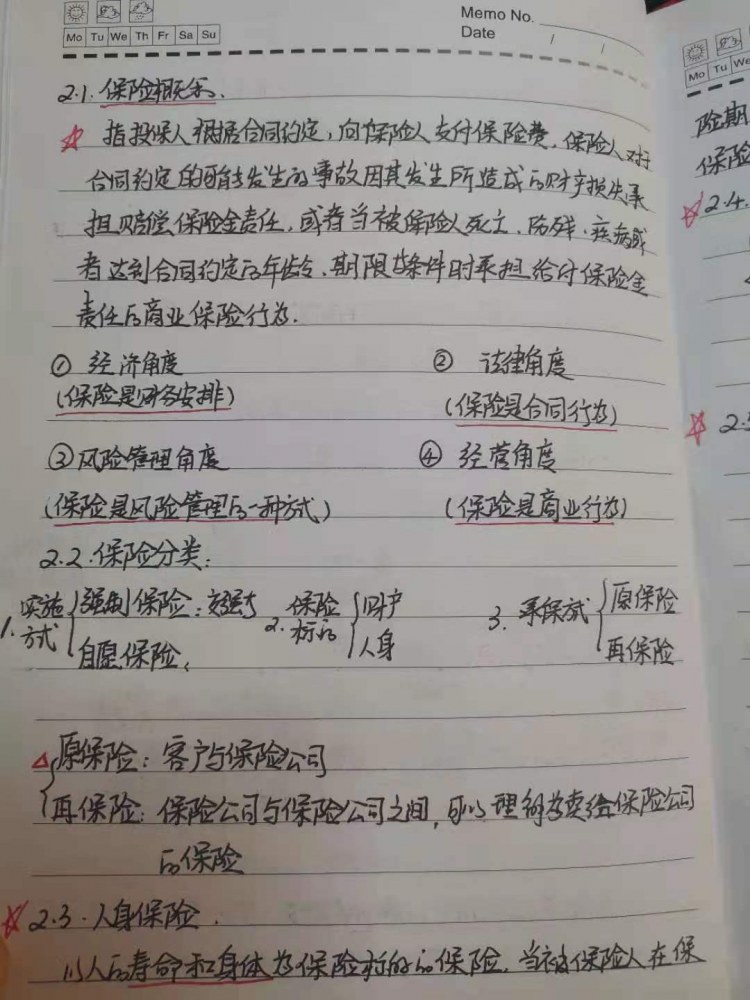 Memo No.
Mo Tu We Th Fr Sa Su
Date / /
2.1.保险概念.
指投保人根据合同约定,向保险人支付保险费,保险人对于
合同约定的可能发生的事故因其发生所造成的财产损失承
担赔偿保险金责任,或者当被保险人死亡、伤残、疾病或
者达到合同约定的年龄、期限等条件时承担给付保险金
责任的商业保险行为.
① 经济角度 ② 法律角度
(保险是财务安排) (保险是合同行为)
③风险管理角度 ④ 经营角度
(保险是风险管理的一种方式) (保险是商业行为)
2.2.保险分类:
1.实施方式 强制保险:交强 2.保险标的 财产 3.承保方式 原保险
自愿保险、 人身 再保险
原保险:客户与保险公司
再保险:保险公司与保险公司之间,可以理解为卖给保险公司
的保险
2.3.人身保险.
以人的寿命和身体为保险标的的保险.当被保险人在保
Mo Tu We
险期
保险
2.4.
2.5